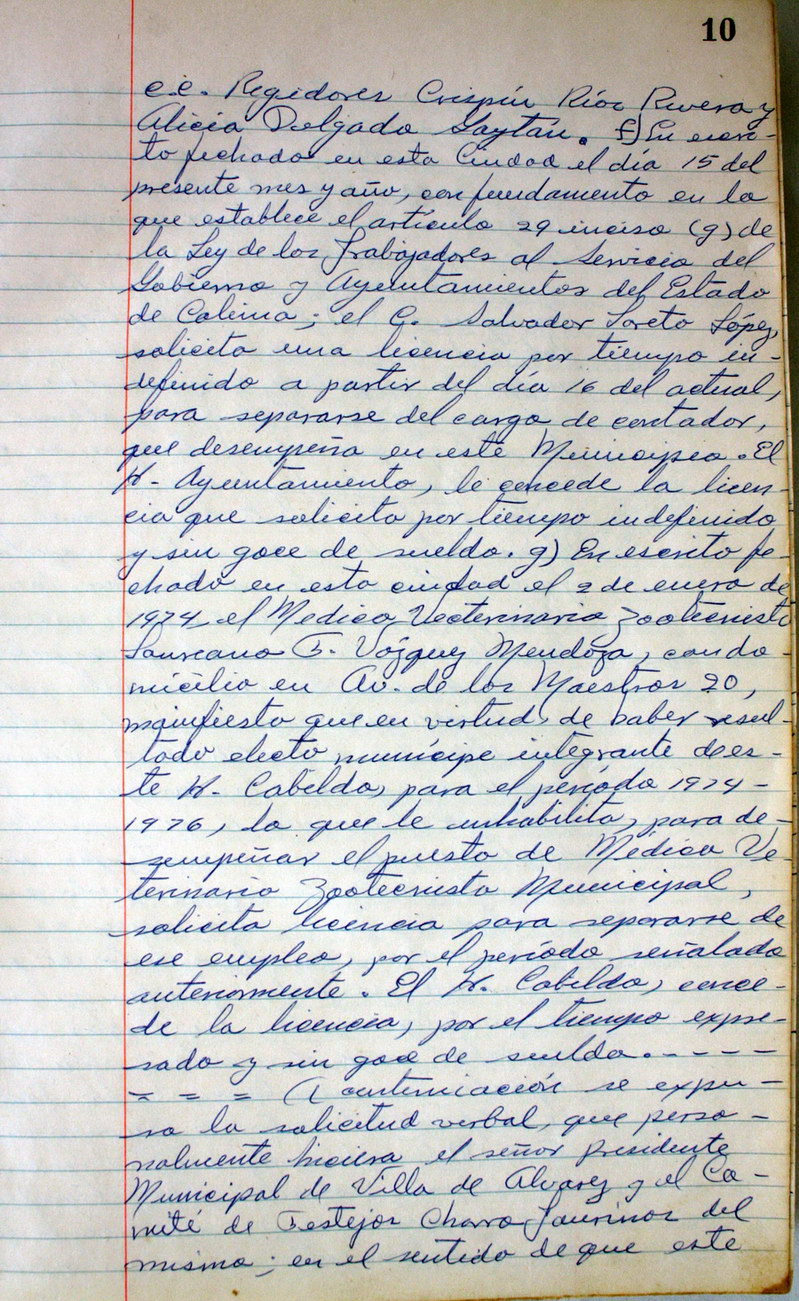 10
c.c. Regidores Crispín Ríos Rivera y
Alicia Delgado Gaytán. f) En escri-
to fechado en esta Ciudad el día 15 del
presente mes y año, con fundamento en lo
que establece el artículo 29 inciso (g) de
la Ley de los Trabajadores al Servicio del
Gobierno y Ayuntamientos del Estado
de Colima; el C. Salvador Loreto López,
solicita una licencia por tiempo in-
definido a partir del día 16 del actual,
para separarse del cargo de contador,
que desempeña en este Municipio. El
H. Ayuntamiento, le concede la licen-
cia que solicita por tiempo indefinido
y sin goce de sueldo. g) En escrito fe-
chado en esta ciudad el 2 de enero de
1974 el Medico Vecterinario Zootecnista
Laureano F. Vázquez Mendoza, con do-
micilio en Av. de los Maestros 20,
manifiesta que en virtud de haber resul-
tado electo munícipe integrante de es-
te H. Cabildo, para el período 1974-
1976, lo que le inhabilita, para de-
sempeñar el puesto de Médico Ve-
terinario Zootecnista Municipal,
solicita licencia para separarse de
ese empleo, por el período señalado
anteriormente. El H. Cabildo, conce-
de la licencia, por el tiempo expre-
sado y sin goce de sueldo. - - - -
= = = A continuación se expu-
so la solicitud verbal, que perso-
nalmente hiciera el señor presidente
Municipal de Villa de Alvarez y el Co-
mité de Festejos Charro Taurinos del
mismo; en el sentido de que este